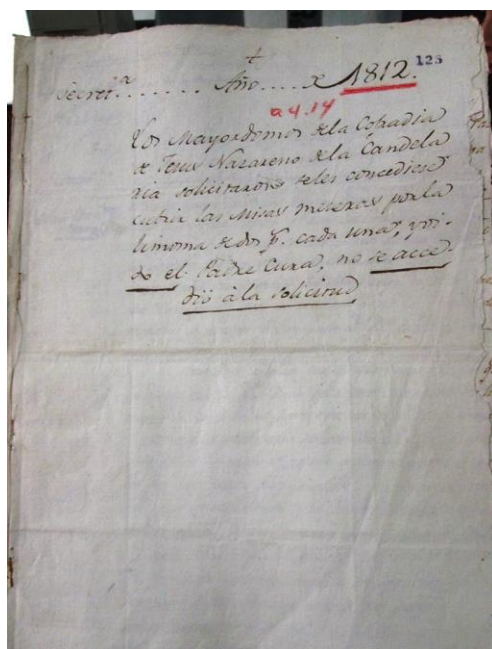 +
125
Secret.ª ....... Año .... de 1812.
a4.14
Los Mayordomos dela Cofradia
de Jesus Nazareno dela Candela
ria solicitaron seles concediese
cubrir las Misas meseras por la
limosna de dos p.s cada una, y oi-
do el Padre Cura, no se acce-
dió à la solicitud